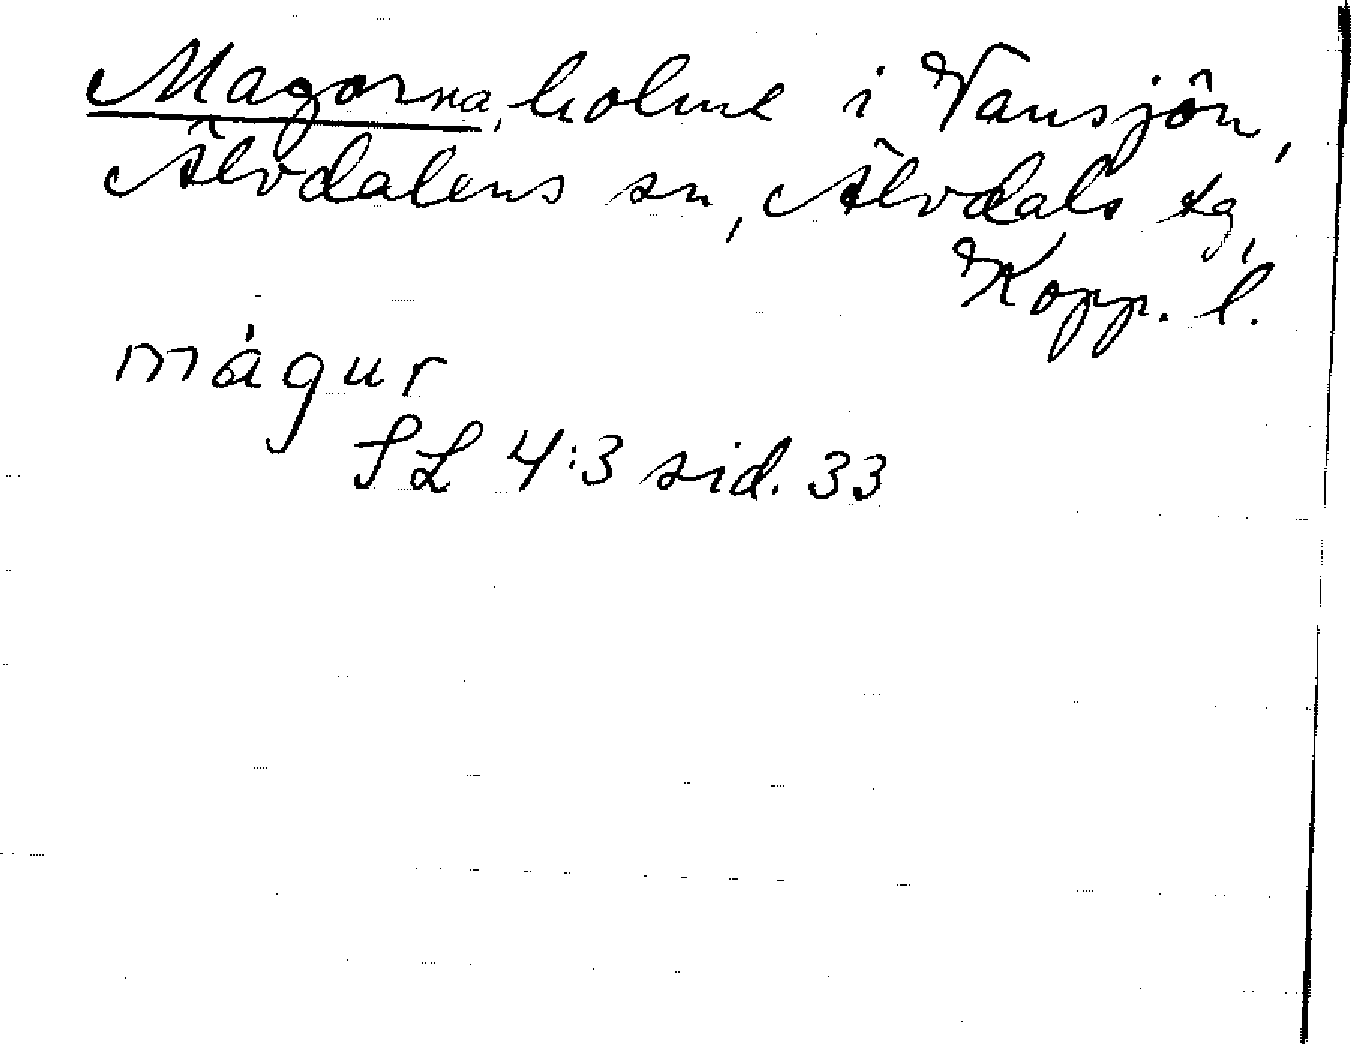 Magorna, holme i Vansjön,
Älvdalens sn, Älvdals tg,
Kopp. l.
mágur
SL 4:3 sid. 33